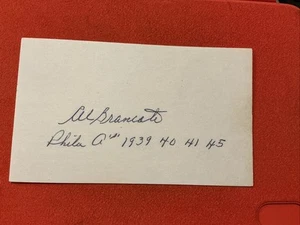 Al Brancato
Phila A's 1939 40 41 45